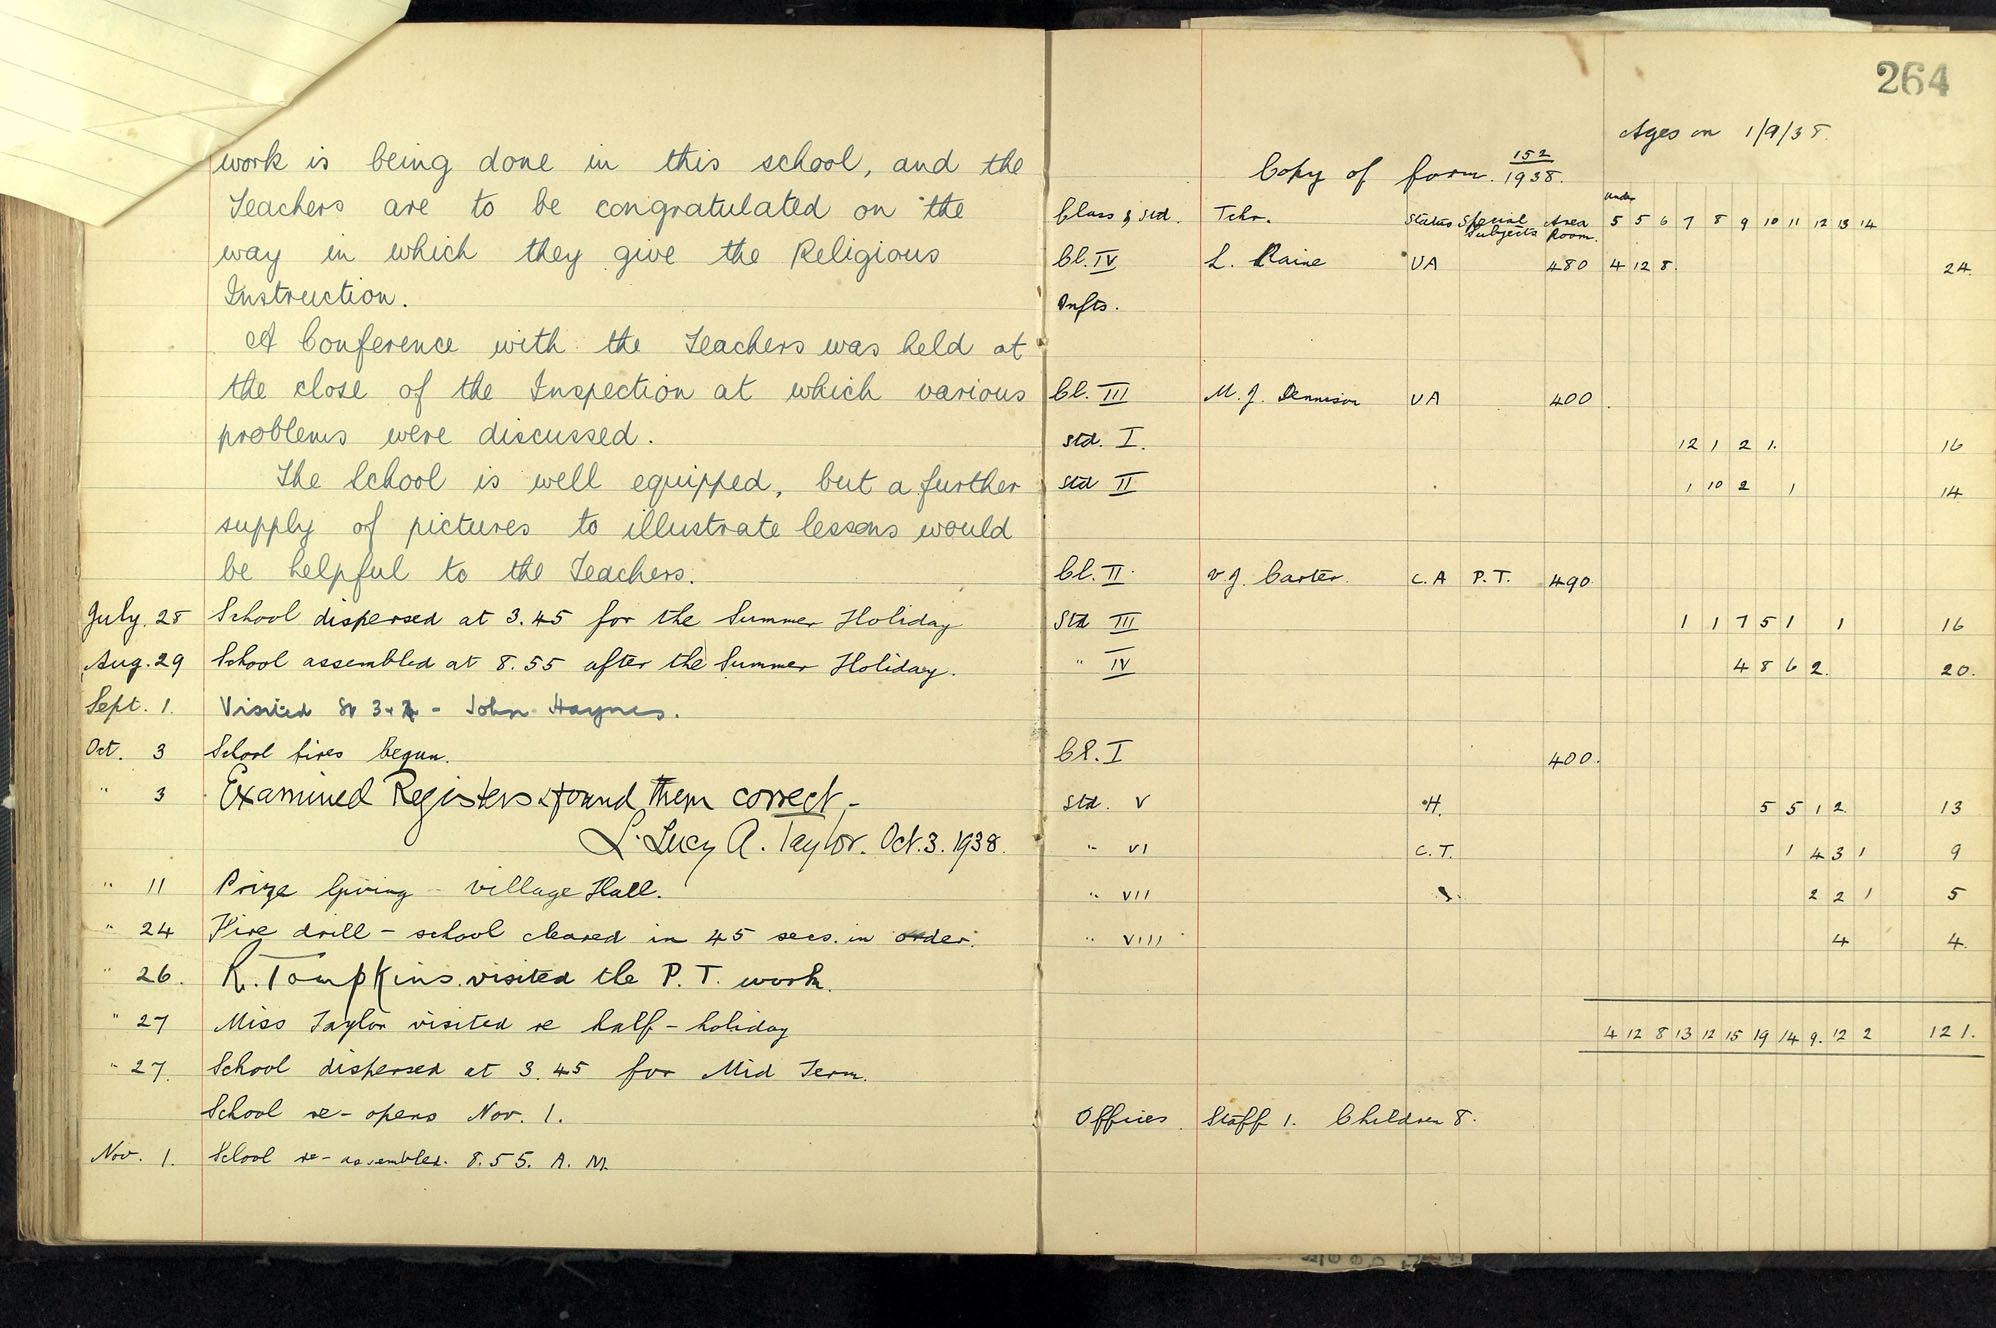 work is being done in this school, and the
Teachers are to be congratulated on the
way in which they give the Religious
Instruction.
A Conference with the Teachers was held at
the close of the Inspection at which various
problems were discussed.
The School is well equipped, but a further
supply of pictures to illustrate lessons would
be helpful to the Teachers.
July. 28 School dispersed at 3.45 for the Summer Holiday
Aug. 29 School assembled at 8.55 after the Summer Holiday.
Sept. 1. Visited - John Haynes.
Oct. 3 School fires begun.
" 3 Examined Registers & found them correct,-
L. Lucy A. Taylor. Oct. 3. 1938.
" 11 Prize Giving - Village Hall.
" 24 Fire drill - school cleared in 45 secs. in order.
" 26. R. Tompkins visited the P. T. work.
" 27 Miss Taylor visited re half-holiday
" 27. School dispersed at 3.45 for Mid Term.
School re-opens Nov. 1.
Nov. 1. School re-assembled. 8.55. A. M.
264
Ages on 1/9/38.
Copy of form. 152/1938.
Class & Std. Tchr. Status Special Subjects Area Room. Under 5 5 6 7 8 9 10 11 12 13 14
Cl. IV L. Raine UA 480 4 12 8. 24
Infts.
Cl. III M. J. Dennison UA 400
Std. I. 12 1 2 1. 16
Std II 1 10 2 1 14
Cl. II V. J. Carter. C.A P.T. 490
Std III 1 1 7 5 1 1 16
" IV 4 8 6 2. 20.
Cl. I 400.
Std. V H. 5 5 1 2 13
" VI C.T. 1 4 3 1 9
" VII 2 2 1 5
" VIII 4 4.
4 12 8 13 12 15 19 14 9. 12 2 121.
Offices. Staff 1. Children 8.